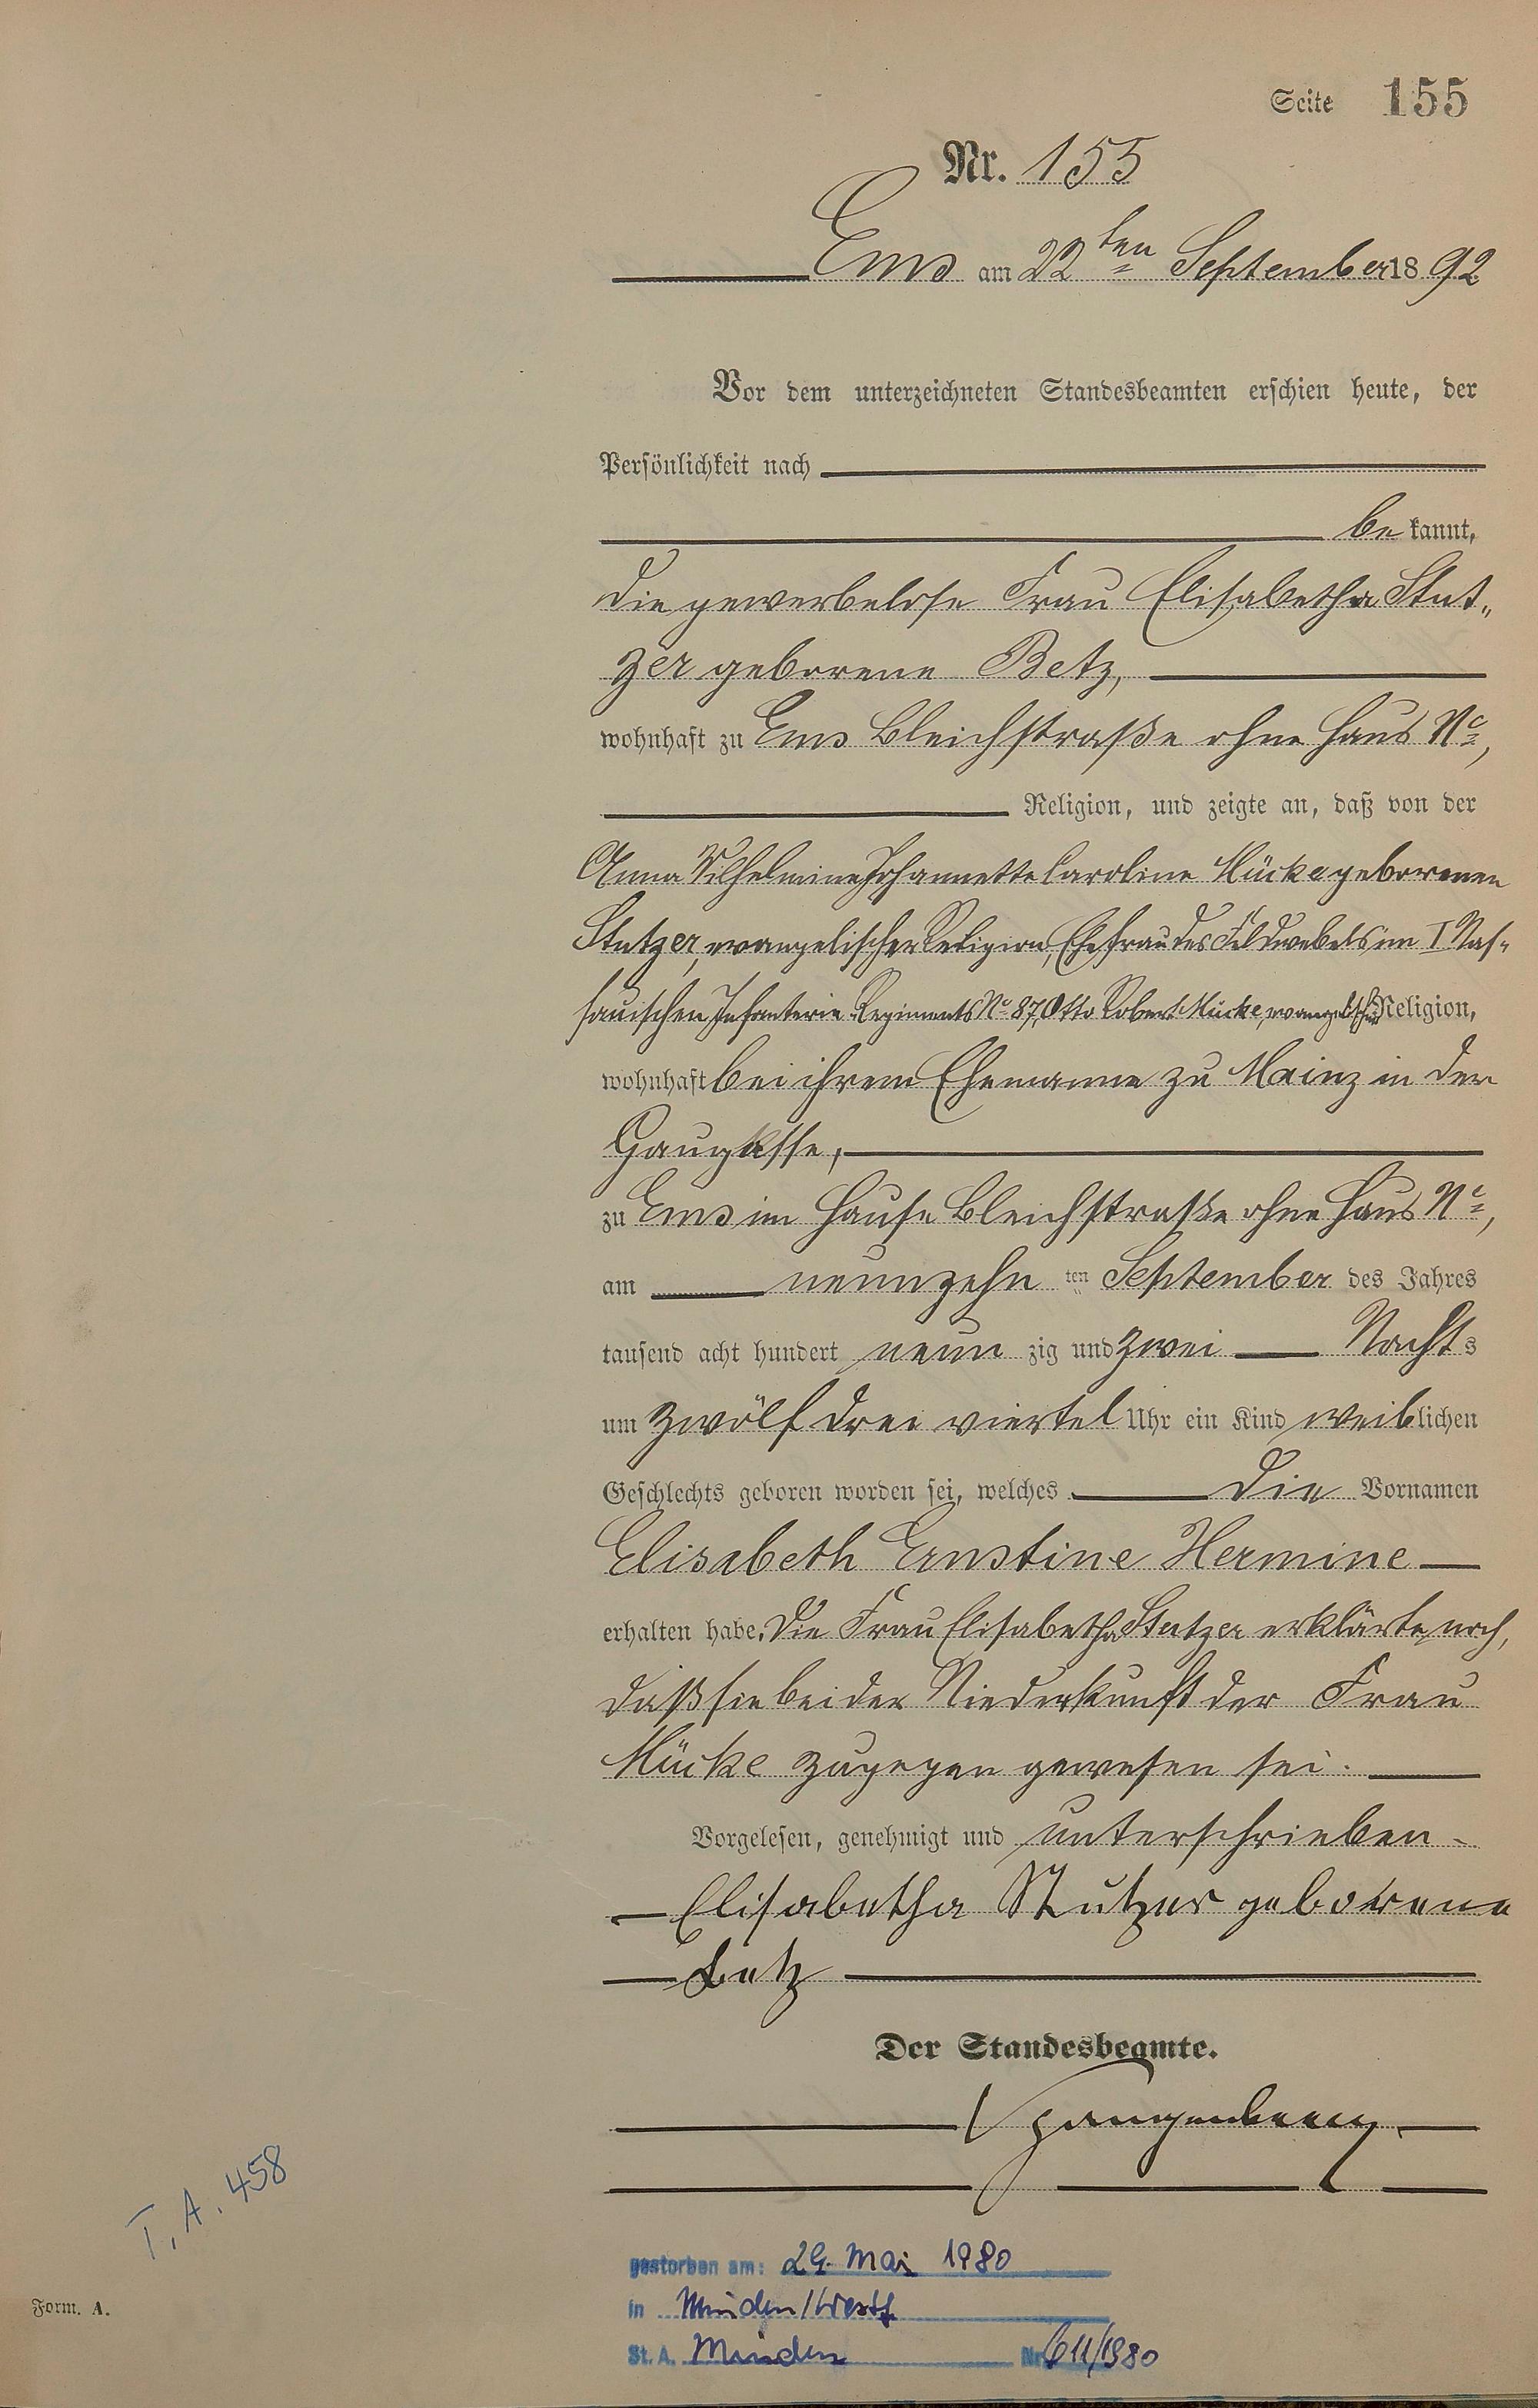 Seite 155
Nr. 155
Ems am 22ten September 1892
Vor dem unterzeichneten Standesbeamten erschien heute, der
Persönlichkeit nach
bekannt,
die gewerbelose Frau Elisabetha Stut„
zer geborene Betz,
wohnhaft zu Ems Bleichstraße ohne Haus No,
Religion, und zeigte an, daß von der
Anna Wilhelmine Johannette Caroline Mücke geborenen
Stutzer, evangelischer Religion, Ehefrau des Feldwebels im I Nas„
sauischen Infanterie Regiments No 87, Otto Robert Mücke, evangelischer Religion,
wohnhaft bei ihrem Ehemanne zu Mainz in der
Gaugasse,
zu Ems im Hause Bleichstraße ohne Haus No,
am neunzehn ten September des Jahres
tausend acht hundert neun zig und zwei Nachts
um zwölf drei viertel Uhr ein Kind weiblichen
Geschlechts geboren worden sei, welches die Vornamen
Elisabeth Ernstine Hermine
erhalten habe. Die Frau Elisabetha Stutzer erklärte noch,
daß sie bei der Niederkunft der Frau
Mücke zugegen gewesen sei.
Vorgelesen, genehmigt und unterschrieben
Elisabetha Stutzer geborene
Betz
Der Standesbeamte.
Spangenberg
T. A. 458
gestorben am: 29. Mai 1980
in Minden/Westf
Form. A.
St. A. Minden Nr. 611/1980